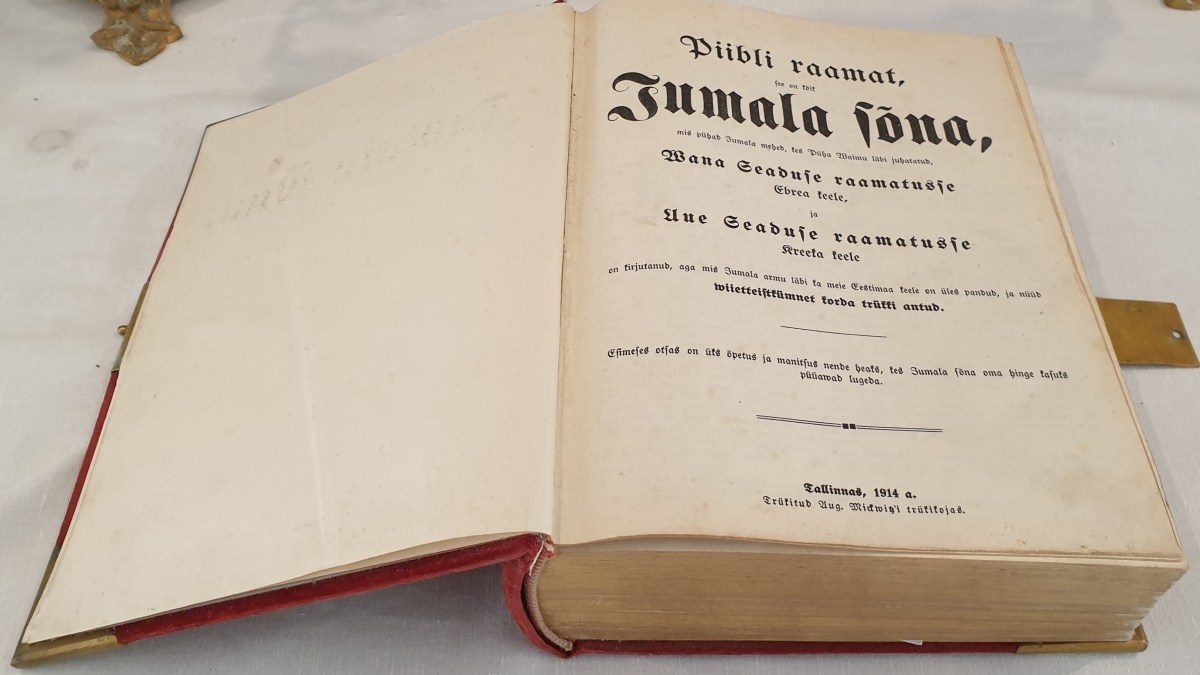 Piibli raamat,
see on kõik
Jumala sõna,
mis pühad Jumala mehed, kes Püha Waimu läbi juhatatud,
Wana Seaduse raamatusse
Ebrea keele,
ja
Uue Seaduse raamatusse
Kreeka keele
on kirjutanud, aga mis Jumala armu läbi ka meie Eestimaa keele on üles pandud, ja nüüd
wiietteistkümnet korda trükki antud.
Esimeses otsas on üks õpetus ja manitsus nende heaks, kes Jumala sõna oma hinge kasuks
püüawad lugeda.
Tallinnas, 1914 a.
Trükitud Aug. Mickwitz'i trükikojas.